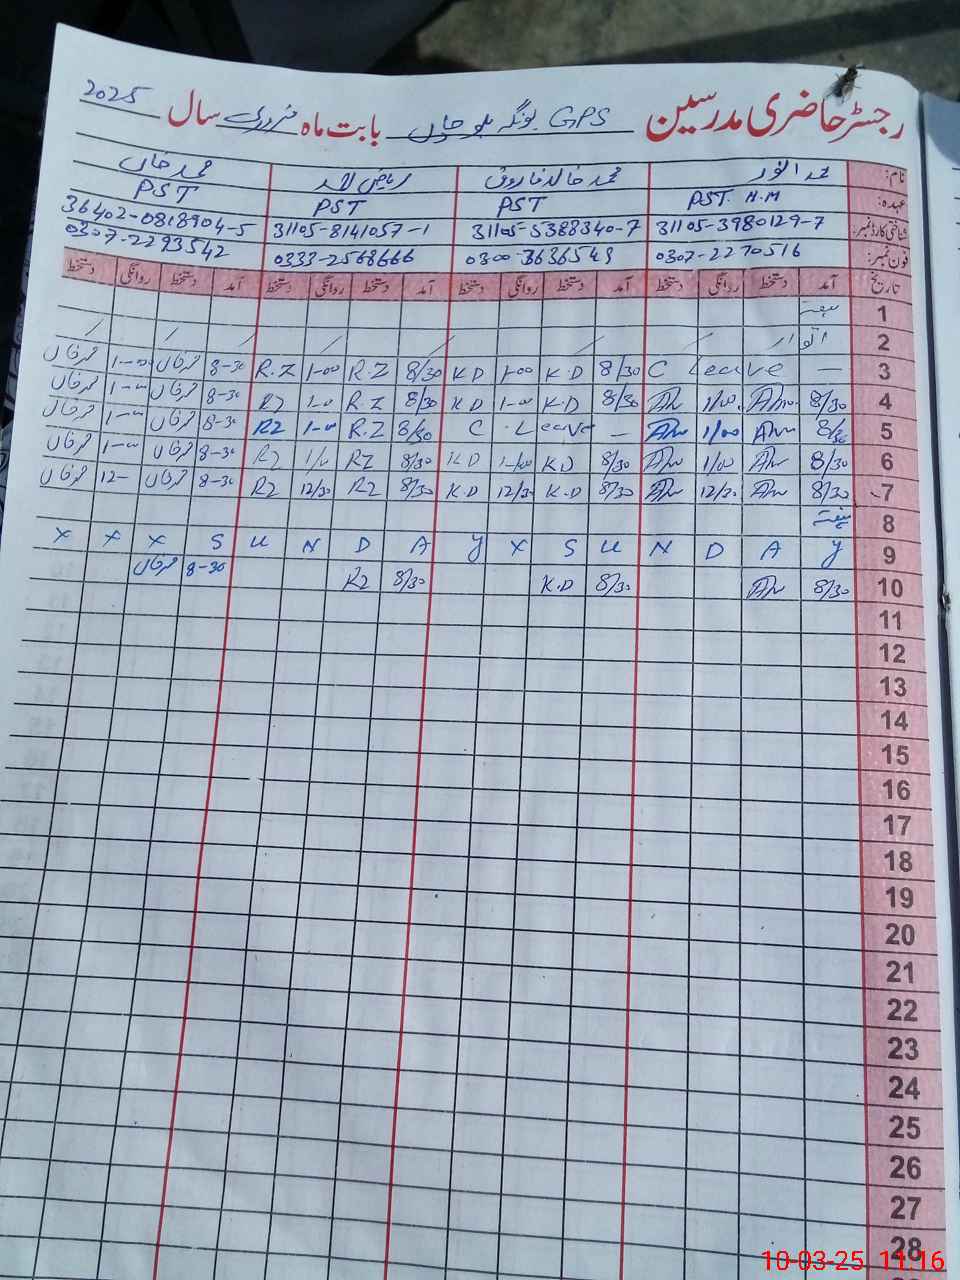 رجسٹر حاضری مدرسین GPS بونگہ بلوچاں بابت ماہ فروری سال 2025
نام: محمد انور محمد خالد فاروق ریاض احمد محمد خاں
عہدہ: PST. H.M PST PST PST
شناختی کارڈ نمبر: 31105-3980129-7 31105-5388340-7 31105-8141057-1 36402-0818904-5
فون نمبر: 0307-2270516 0300-3636549 0333-2568666 0307-2293542
تاریخ آمد دستخط روانگی دستخط آمد دستخط روانگی دستخط آمد دستخط روانگی دستخط آمد دستخط روانگی دستخط
1 ہفتہ
2 اتوار
3 — C Leave 8/30 K.D 1-00 K.D 8/30 R.Z 1-00 R.Z 8-30 1-00
4 8/30 1/00 8/30 K.D 1-00 K.D 8/30 R.Z 1-00 RZ 8-30 1-00
5 8/30 1/00 — C. Leave 8/30 R.Z 1-00 RZ 8-30 1-00
6 8/30 1/00 8/30 K.D 1-00 K.D 8/30 RZ 1/00 RZ 8-30 1-00
7 8/30 12/30 8/30 K.D 12/30 K.D 8/30 RZ 12/30 RZ 8-30 12-
8 ہفتہ
9 x x x S U N D A y x S U N D A y
10 8/30 8/30 K.D 8/30 RZ 8-30
11
12
13
14
15
16
17
18
19
20
21
22
23
24
25
26
27
28
10-03-25 11:16